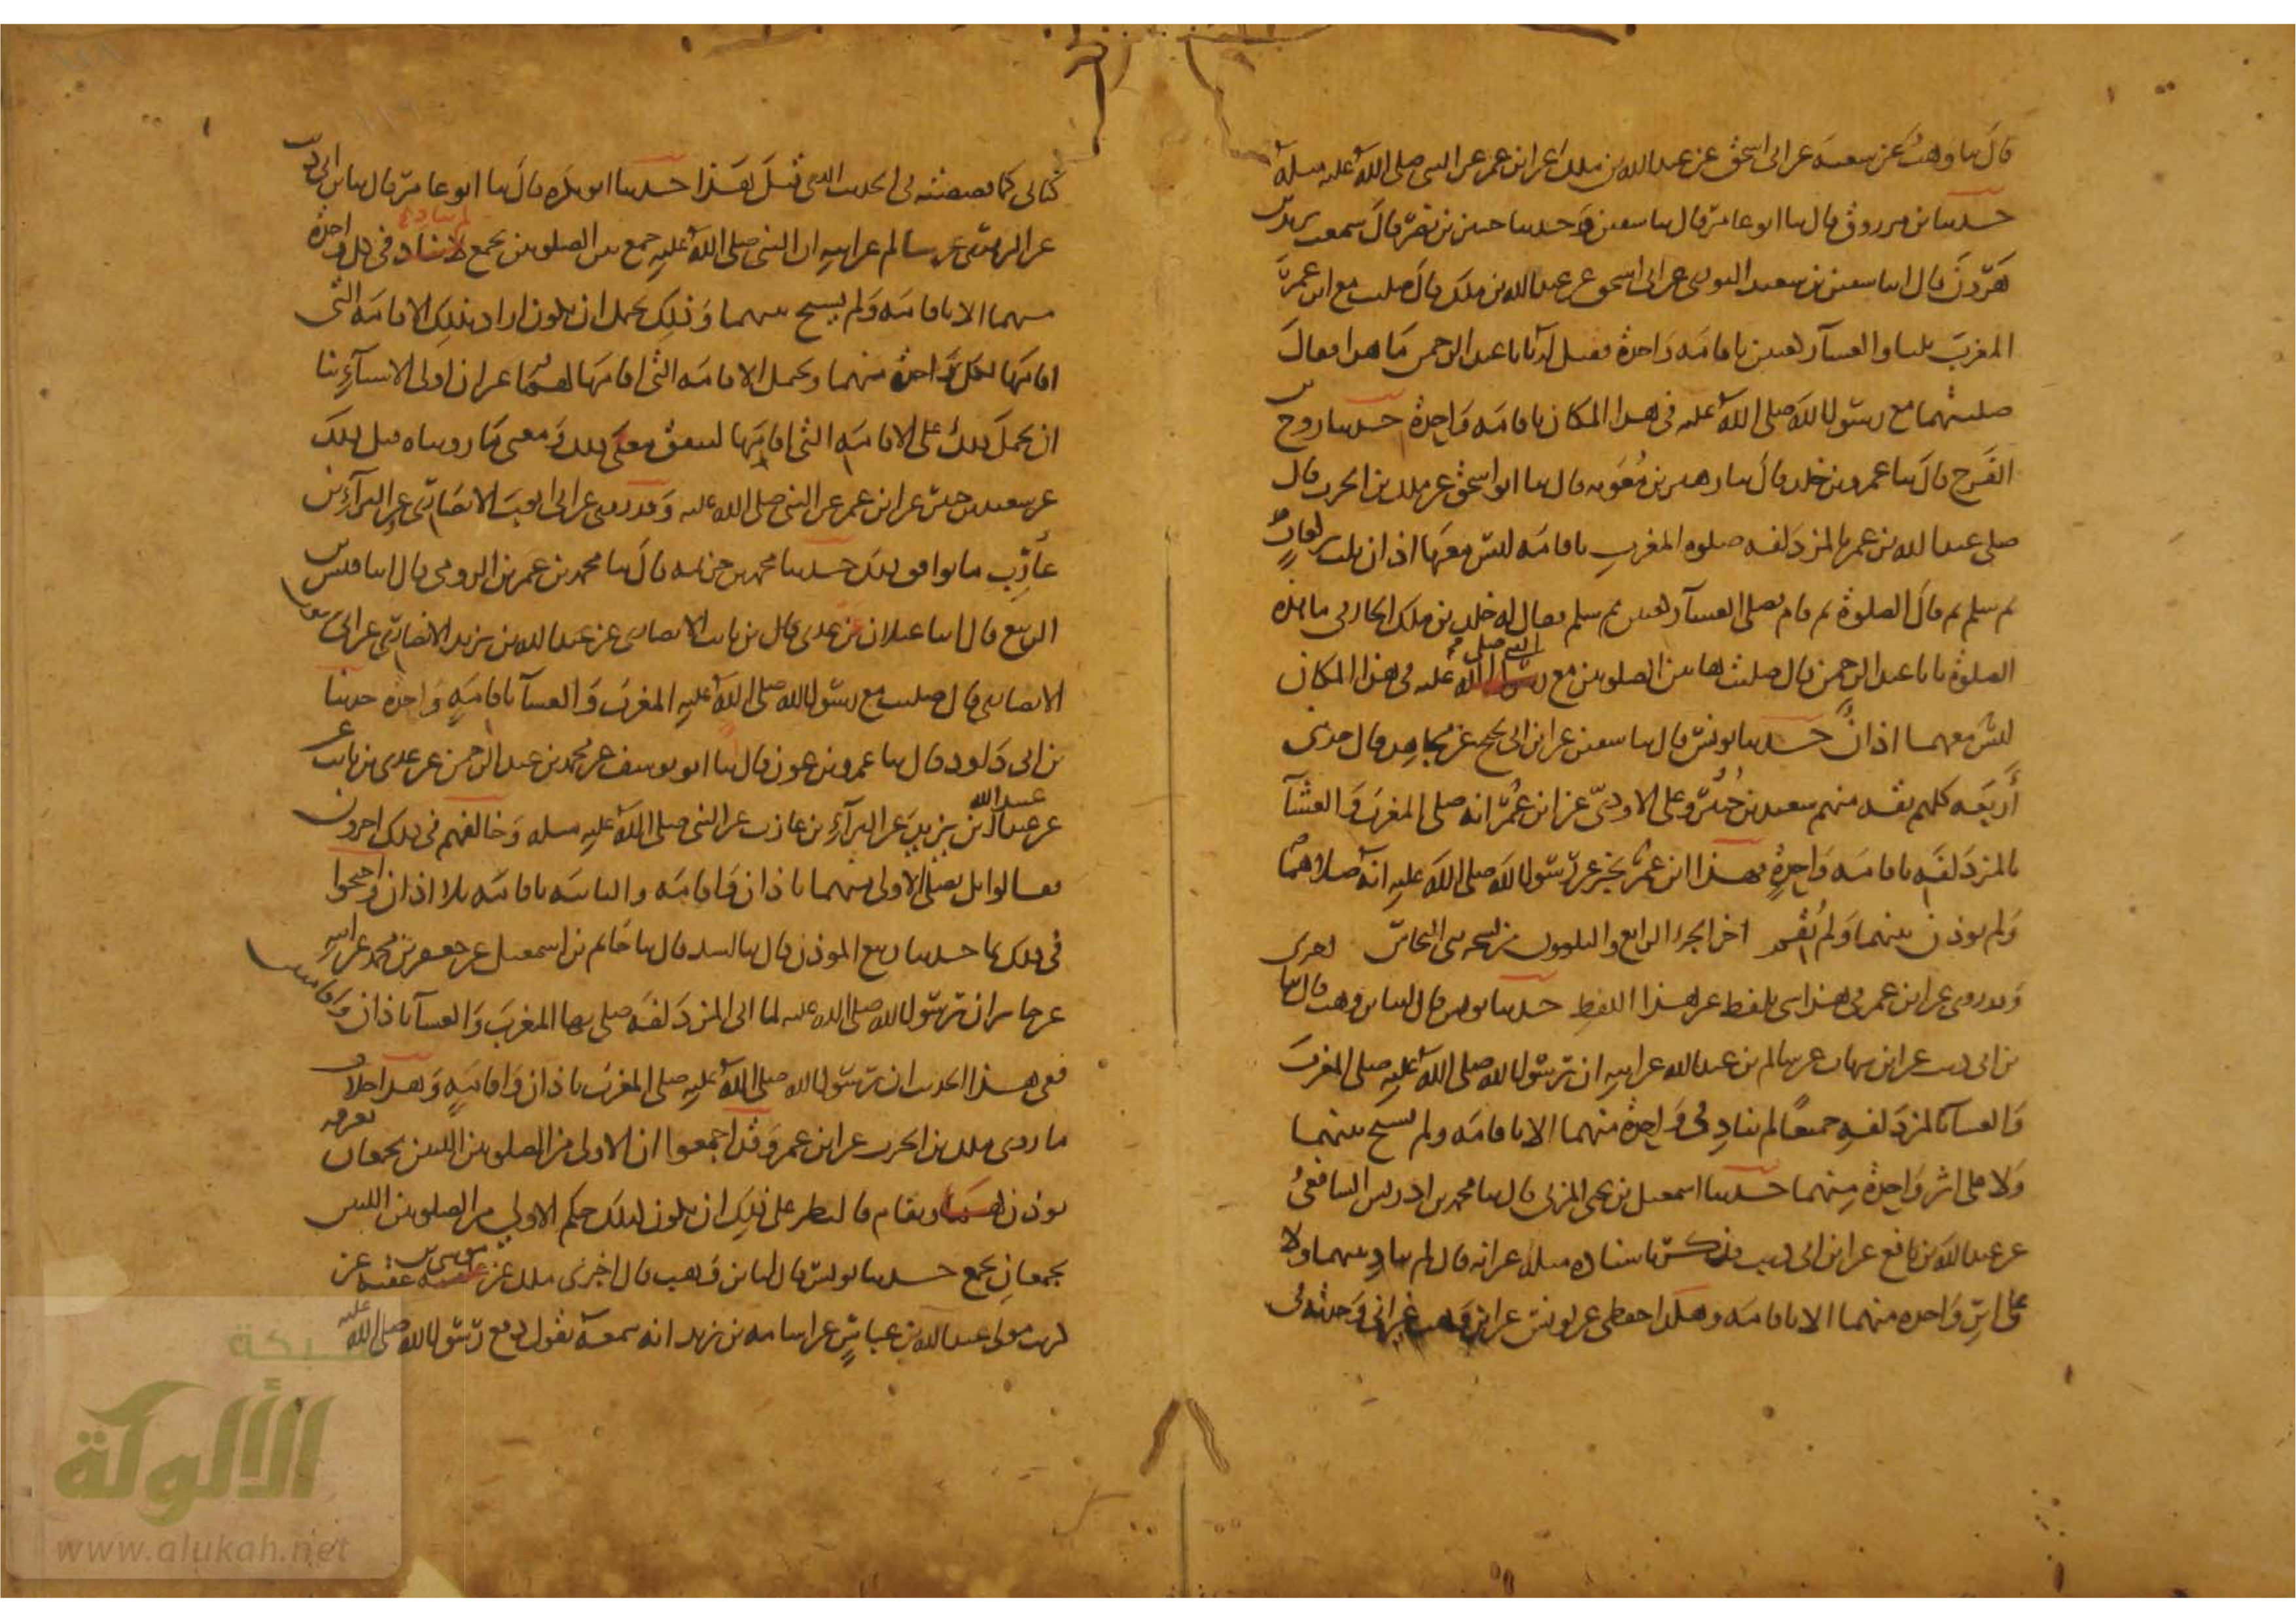 قال ثنا وهب عن شعبة عن ابى اسحق عن عبد الله بن ملك عن ابن عمر عن النبى صلى الله عليه مثله
حدثنا بن مرزوق قال ثنا ابو عامر قال ثنا سفين وحدثنا حسين بن نصر قال سمعت يزيد بن
هرون قال انا سفين بن سعيد الثورى عن ابى اسحق عن عبد الله بن ملك قال صليت مع ابن عمر
المغرب ثلثا والعشآ ركعتين باقامة واحدة فقيل له يا با عبد الرحمن ما هذا فقال
صليتهما مع رسول الله صلى الله عليه فى هذا المكان باقامة واحدة حدثنا روح بن
الفرج قال ثنا عمرو بن خلد قال ثنا زهير بن معوية قال ثنا ابو اسحق عن ملك بن الحرث قال
صلى عبد الله بن عمر بالمزدلفة صلوة المغرب باقامة ليس معها اذان ثلث ركعات
ثم سلم ثم قال الصلوة ثم قام فصلى العشآ ركعتين ثم سلم فقال له خلد بن ملك الحارثى ما هذه
الصلوة يا با عبد الرحمن قال صليت هاتين الصلوتين مع النبى صلى الله عليه فى هذا المكان
ليس معهما اذان حدثنا يونس قال ثنا سفين عن ابن ابى نجيح عن مجاهد قال حدثنى
أربعة كلهم ثقة منهم سعيد بن جبير وعلى الاودىّ عن ابن عمر انه صلى المغرب والعشآ
بالمزدلفة باقامة واحدة فهذا ابن عمر يخبر عن رسول الله صلى الله عليه انه صلاهما
ولم يوذن بينهما ولم يقم اخر الجزء الرابع والثلثون من نسخة بنى النحاس اخرى
وقد روى عن ابن عمر فى هذا شى بلفظ غير هذا اللفظ حدثنا يونس قال انا بن وهب قال ثنا
بن ابى ذيب عن ابن شهاب عن سالم بن عبد الله عن ابيه ان رسول الله صلى الله عليه صلى المغرب
والعشآ بالمزدلفة جميعًا لم يناد فى واحدة منهما الا باقامة ولم يسبح بينهما
ولا على اثر واحدة منهما حدثنا اسمعيل بن يحيى المزنى قال ثنا محمد بن ادريس الشافعى
عن عبد الله بن نافع عن ابن ابى ذيب فذكر باسناده مثله غير انه قال لم يناد بينهما ولا
على اثر واحدة منهما الا باقامة وهكذا حفظى عن يونس عن ابن وهب غير انى وجدته فى
كتابى كما قصصته فى الحديث الذى قبل هذا حدثنا ابو بكره قال ثنا ابو عامر قال ثنا بن ابى ذيب
عن الزهرى عن سالم عن ابيه ان النبى صلى الله عليه جمع بين الصلوتين بجمع لم يناد فى كل واحدة
منهما الا باقامة ولم يسبح بينهما وذلك يحتمل ان يكون اراد بذلك الاقامة التى
اقامها لكل واحدة منهما ويحتمل الاقامة التى اقامها لهما غير ان اولى الاشيآء بنا
ان نحمل ذلك على الاقامة التى اقامها ليتفق معنى ذلك ومعنى ما رويناه قبل ذلك
عن سعيد بن جبير عن ابن عمر عن النبى صلى الله عليه وقد روى عن ابى ايوب الانصارى وعن البرآء بن
عازب ما يوافق ذلك حدثنا محمد بن خزيمة قال ثنا محمد بن عمر بن الرومى قال انا قيس بن
الربيع قال انا غيلان عن عدى بن ثابت الانصارى عن عبد الله بن يزيد الانصارى عن ابى ايوب
الانصارى قال صليت مع رسول الله صلى الله عليه المغرب والعشآ باقامة واحدة حدثنا
بن ابى داود قال ثنا عمرو بن عون قال انا ابو يوسف عن محمد بن عبد الرحمن عن عدى بن ثابت
عن عبد الله بن يزيد عن البرآء بن عازب عن النبى صلى الله عليه مثله وخالفهم فى ذلك اخرون
فقالوا بل يصلى الاولى منهما باذان واقامة والثانية باقامة بلا اذان واحتجوا
فى ذلك بما حدثنا ربيع الموذن قال ثنا اسد قال ثنا حاتم بن اسمعيل عن جعفر بن محمد عن ابيه
عن جابر ان رسول الله صلى الله عليه لما اتى المزدلفة صلى بها المغرب والعشآ باذان واقامتين
ففى هذا الحديث ان رسول الله صلى الله عليه صلى المغرب باذان واقامة وهذا خلاف
ما روى ملك بن الحرث عن ابن عمر وقد اجمعوا ان الاولى من الصلوتين اللتين تجمعان بعرفة
يوذن لها ويقام فالنظر على ذلك ان يكون كذلك حكم الاولى من الصلوتين اللتين
تجمعان بجمع حدثنا يونس قال انا بن وهب قال اخبرنى ملك عن موسى بن عقبة عن
كريب مولى عبد الله بن عباس عن اسامة بن زيد انه سمعه يقول دفع رسول الله صلى الله عليه
شبكة
الألوكة
www.alukah.net